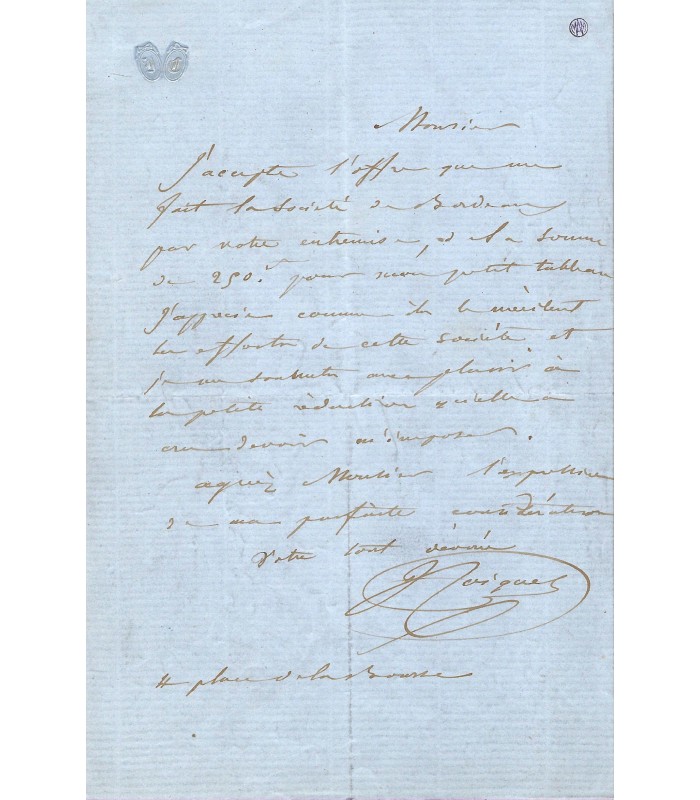 Monsieur
J'accepte l'offre que me
fait la Société de Bordeaux
par votre entremise, d'la somme
de 250.f pour mon petit tableau
J'apprécie comme ils le méritent
les efforts de cette société et
je me soumets avec plaisir à
la petite réduction qu'elle a
cru devoir m'imposer.
agréez Monsieur l'expression
de ma parfaite considération
Votre tout dévoué
place de la Bourse